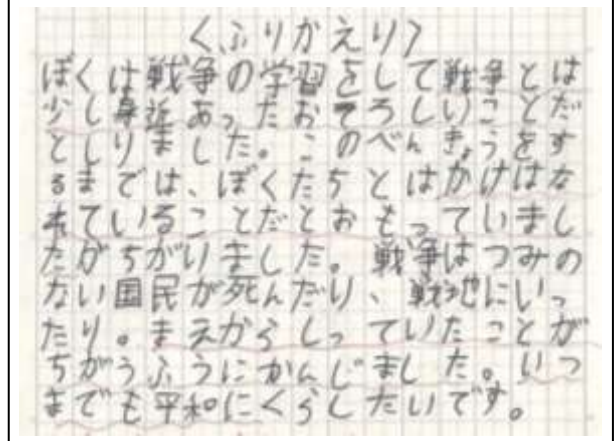 〈ふりかえり〉
ぼくは戦争の学習をして戦争とは
少し身近あったおそろしいことだ
としりました。このべんきょうをす
るまでは、ぼくたちとはかけはな
れていることだとおもっていまし
たがちがいました。戦争はつみの
ない国民が死んだり、戦地にいっ
たり。まえからしっていたことが
ちがうふうにかんじました。いつ
までも平和にくらしたいです。